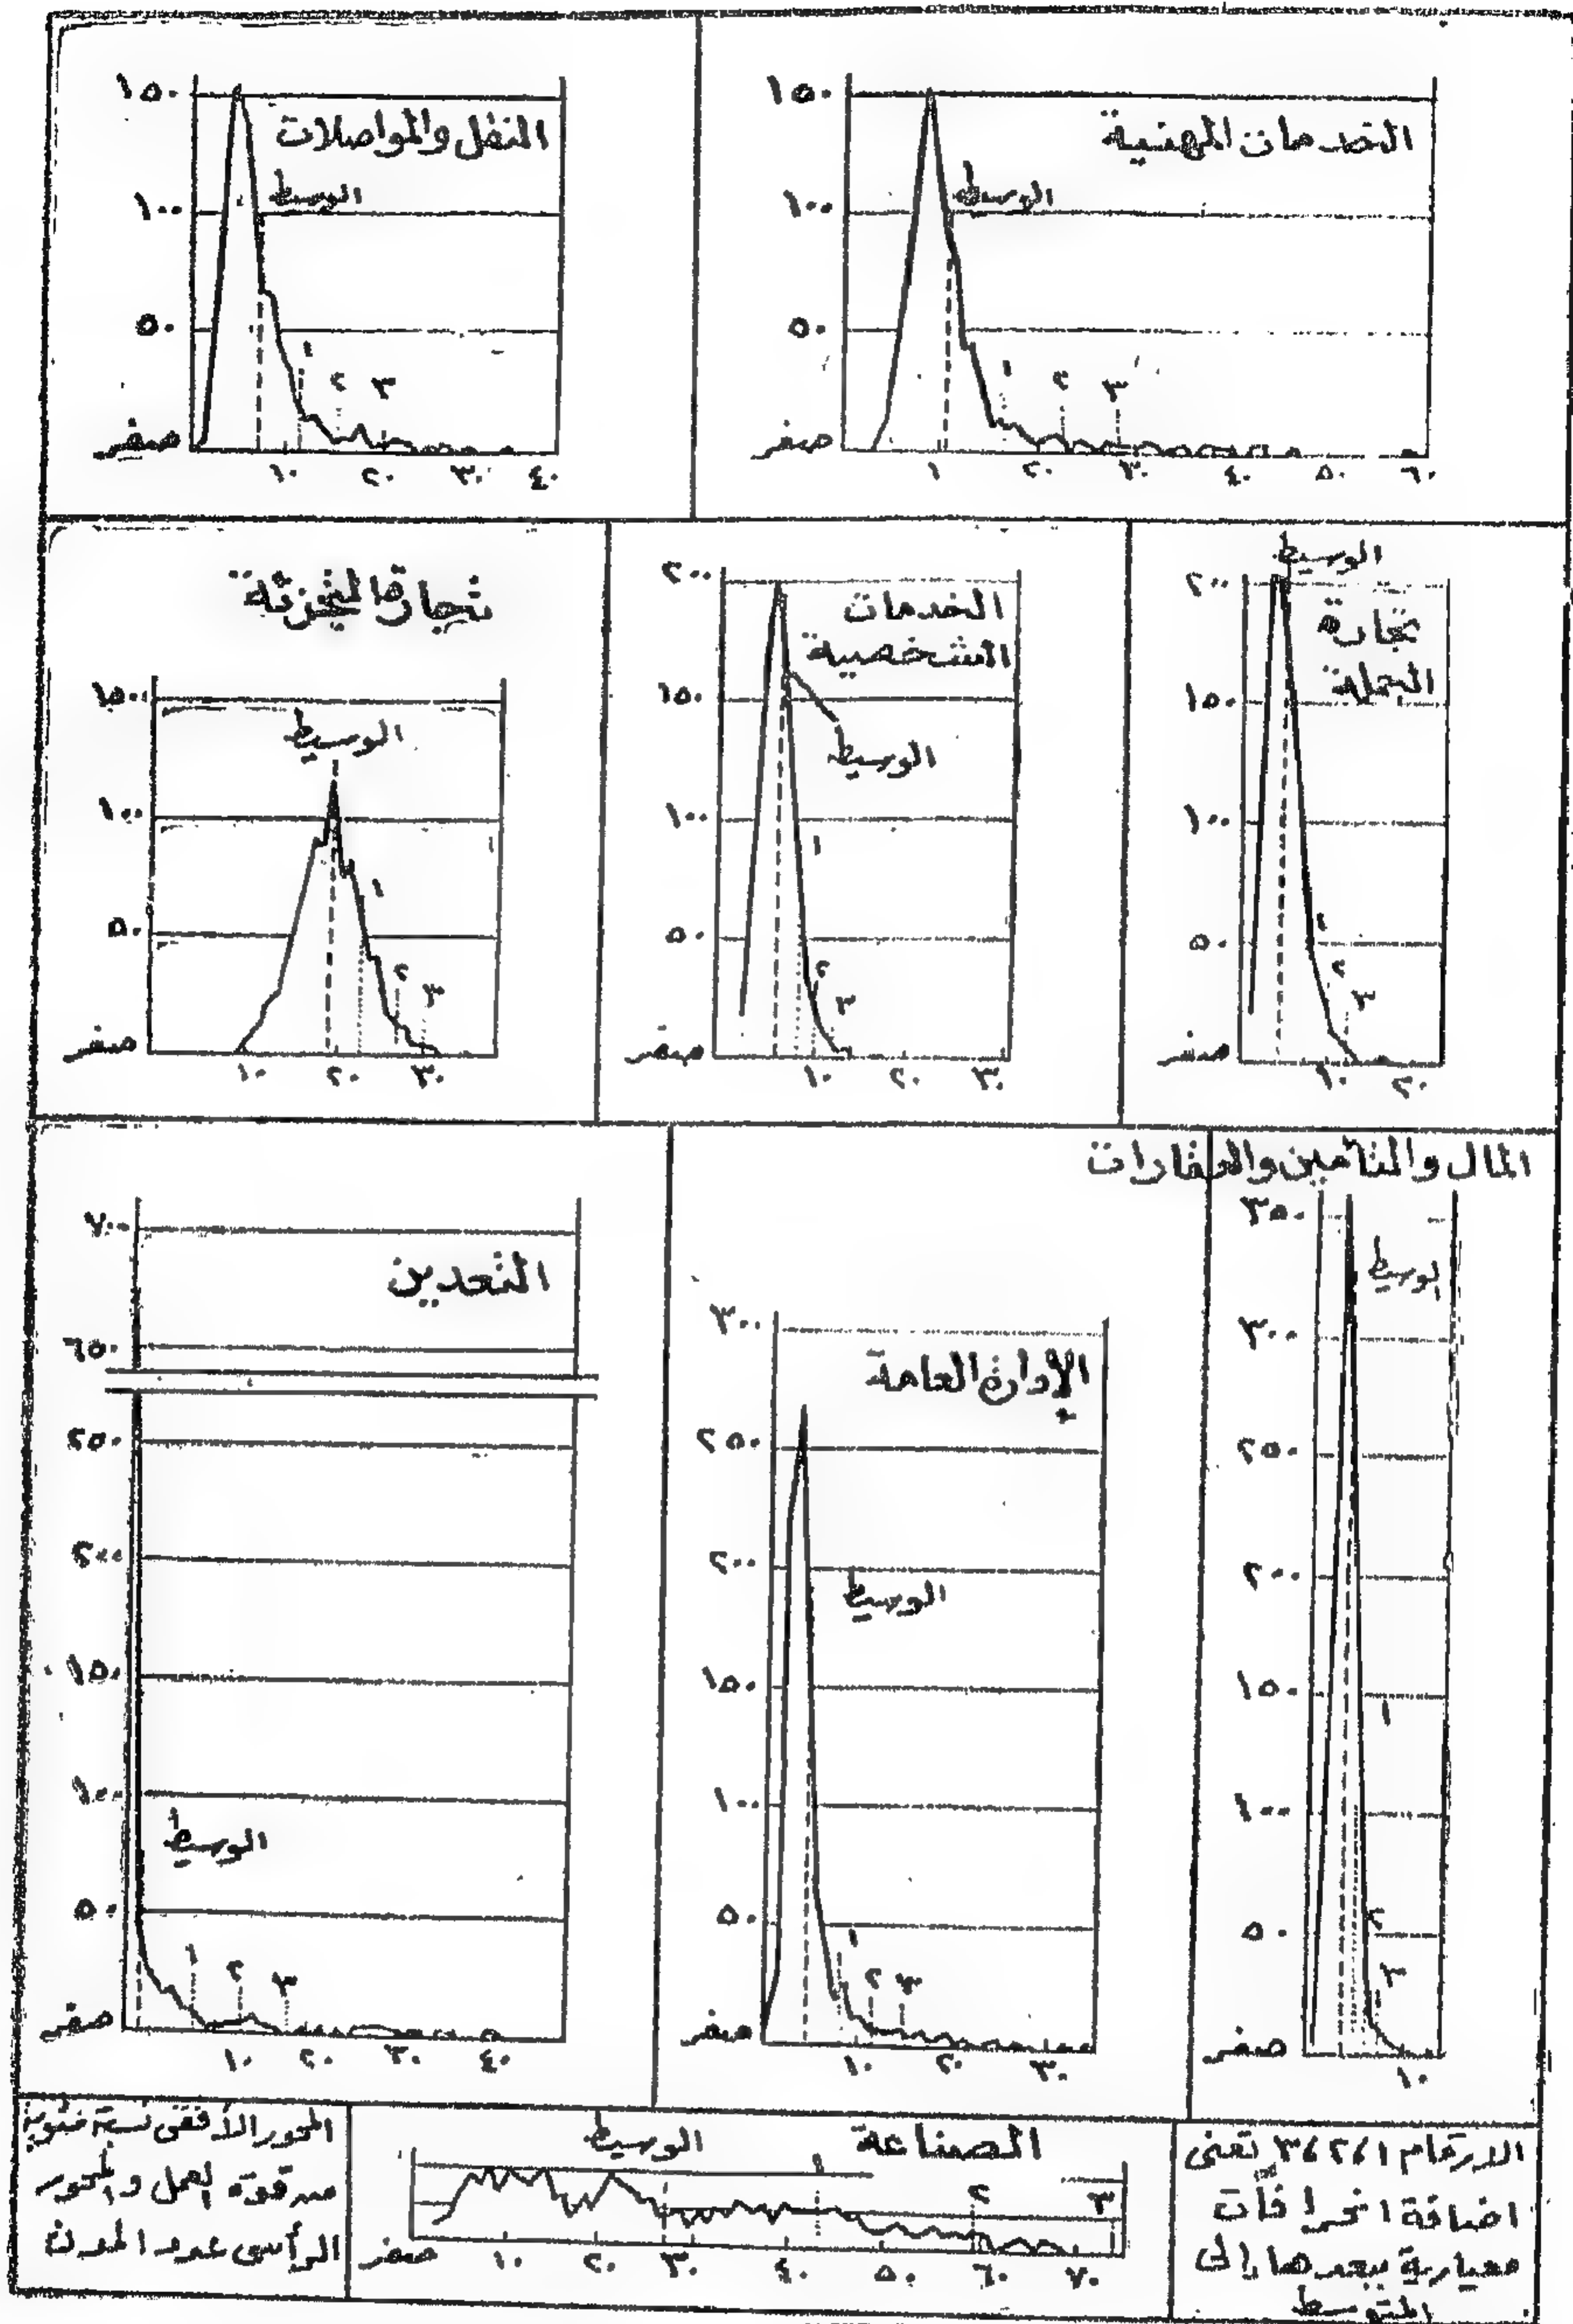 الخدمات المهنية
١٥٠
١٠٠
٥٠
صفر
الوسيط
١ ٢ ٣
١ ٢٠ ٣٠ ٤٠ ٥٠ ٦٠
النقل والمواصلات
١٥٠
١٠٠
٥٠
صفر
الوسيط
١ ٢ ٣
١٠ ٢٠ ٣٠ ٤٠
الوسيط
تجارة
الجملة
٢٠٠
١٥٠
١٠٠
٥٠
صفر
١ ٢ ٣
١٠ ٢٠
الخدمات
الشخصية
٢٠٠
١٥٠
١٠٠
٥٠
صفر
الوسيط
١ ٢ ٣
١٠ ٢٠ ٣٠
تجارة التجزئة
١٥٠
١٠٠
٥٠
صفر
الوسيط
١ ٢ ٣
١٠ ٢٠ ٣٠
المال والتأمين والعقارات
٣٥٠
٣٠٠
٢٥٠
٢٠٠
١٥٠
١٠٠
٥٠
صفر
لوسيط
١ ٢ ٣
١٠
الإدارة العامة
٣٠٠
٢٥٠
٢٠٠
١٥٠
١٠٠
٥٠
صفر
الوسيط
١ ٢ ٣
١٠ ٢٠ ٣٠
التعدين
٧٠٠
٦٥٠
٢٥٠
٢٠٠
١٥٠
١٠٠
٥٠
صفر
الوسيط
١ ٢ ٣
١٠ ٢٠ ٣٠ ٤٠
الارقام ١، ٢، ٣ تعنى
اضافة انحرافات
معيارية ببعدها إلى
المتوسط
الصناعة
الوسيط
١ ٢ ٣
صفر ١٠ ٢٠ ٣٠ ٤٠ ٥٠ ٦٠ ٧٠
المحور الأفقى نسبة مئوية
من قوة العمل والمحور
الرأسى عدد المدن